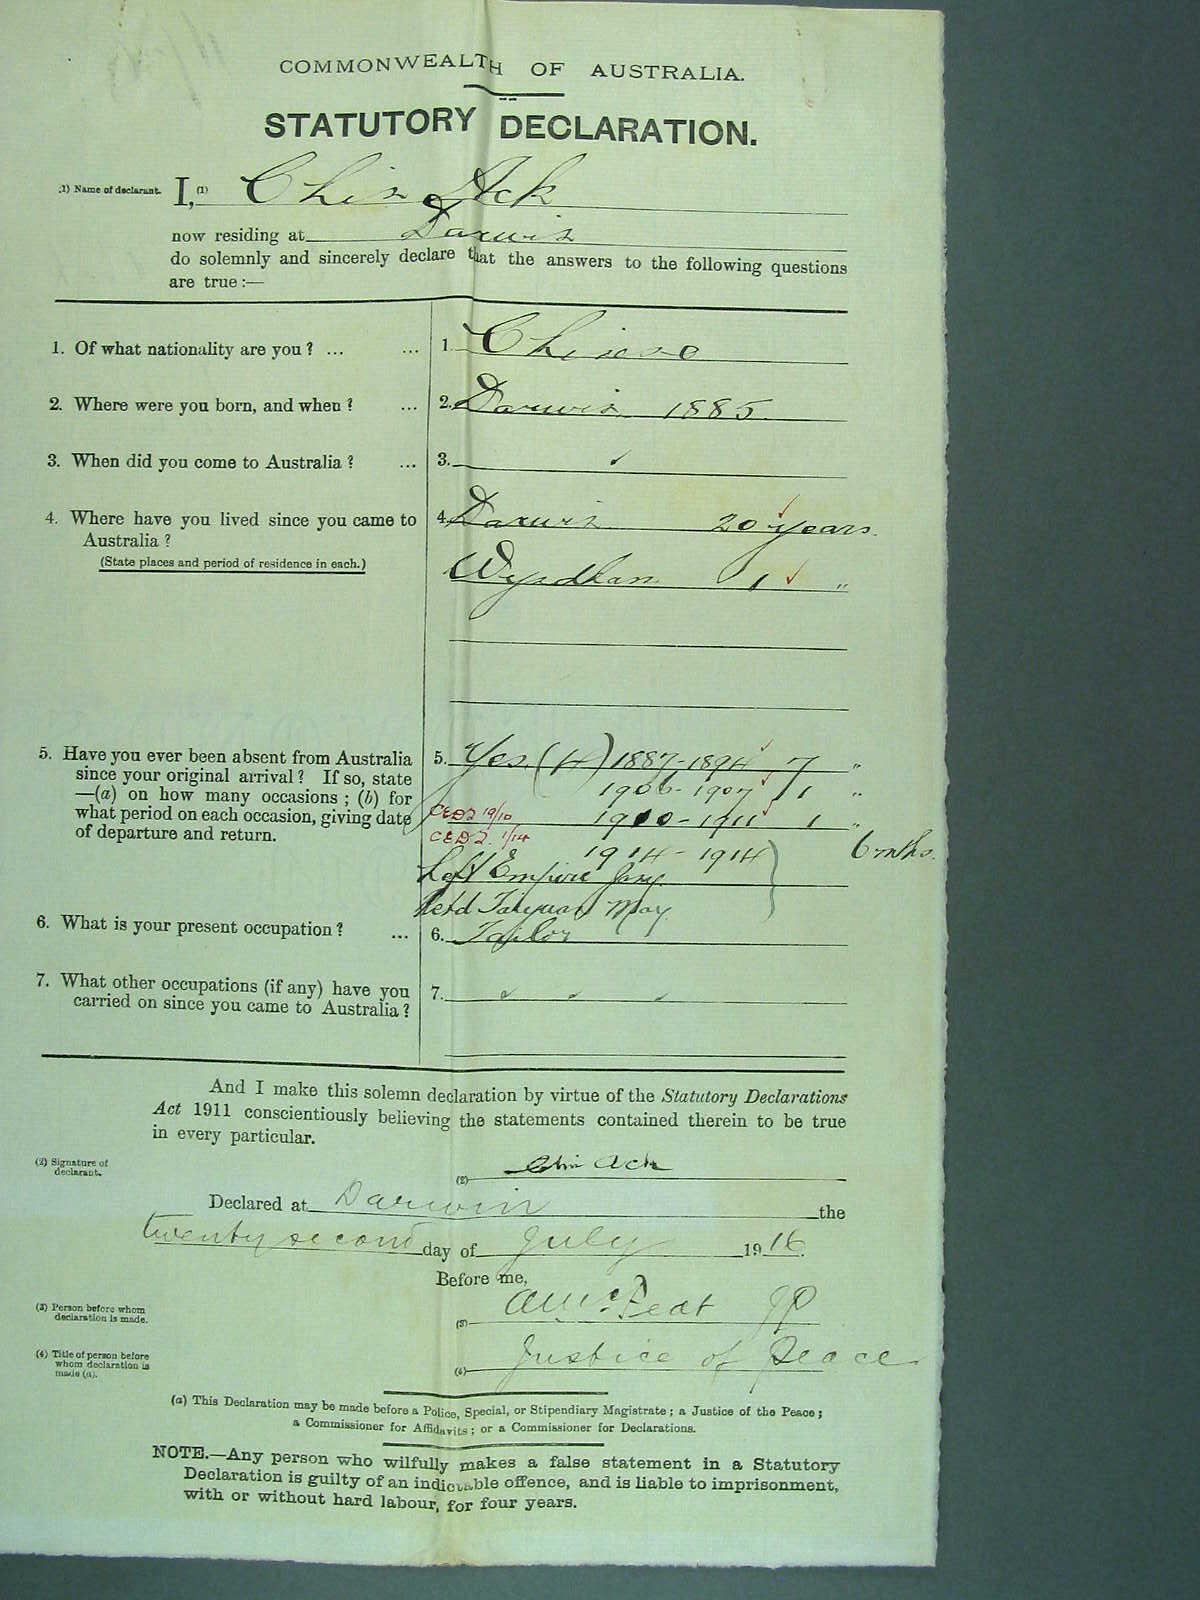 COMMONWEALTH OF AUSTRALIA.
STATUTORY DECLARATION.
(1) Name of declarant. I, (1) Chin Ack
now residing at Darwin
do solemnly and sincerely declare that the answers to the following questions
are true:—
1. Of what nationality are you? ... ... 1. Chinese
2. Where were you born, and when? ... 2. Darwin 1885
3. When did you come to Australia? ... 3.
4. Where have you lived since you came to 4. Darwin 20 years.
Australia?
(State places and period of residence in each.)
Wyndham 1 "
5. Have you ever been absent from Australia 5. Yes. (4) 1887-1894 7 "
since your original arrival? If so, state 1906-1907 1 "
—(a) on how many occasions; (b) for
what period on each occasion, giving date CED2 19/10 1910-1911 1 "
of departure and return. CED2. 1/14
1914-1914 6 mths.
Left Empire Jany.
Retd Taiyuan May
6. What is your present occupation? ... 6. Tailor
7. What other occupations (if any) have you 7.
carried on since you came to Australia?
And I make this solemn declaration by virtue of the Statutory Declarations
Act 1911 conscientiously believing the statements contained therein to be true
in every particular.
(2) Signature of
declarant.
(2) Chin Ack
Declared at Darwin the
twenty second day of July 1916.
Before me,
(3) Person before whom
declaration is made.
(3) JP
(4) Title of person before
whom declaration is
made (a).
(4) Justice of Peace
(a) This Declaration may be made before a Police, Special, or Stipendiary Magistrate; a Justice of the Peace;
a Commissioner for Affidavits; or a Commissioner for Declarations.
NOTE.—Any person who wilfully makes a false statement in a Statutory
Declaration is guilty of an indictable offence, and is liable to imprisonment,
with or without hard labour, for four years.